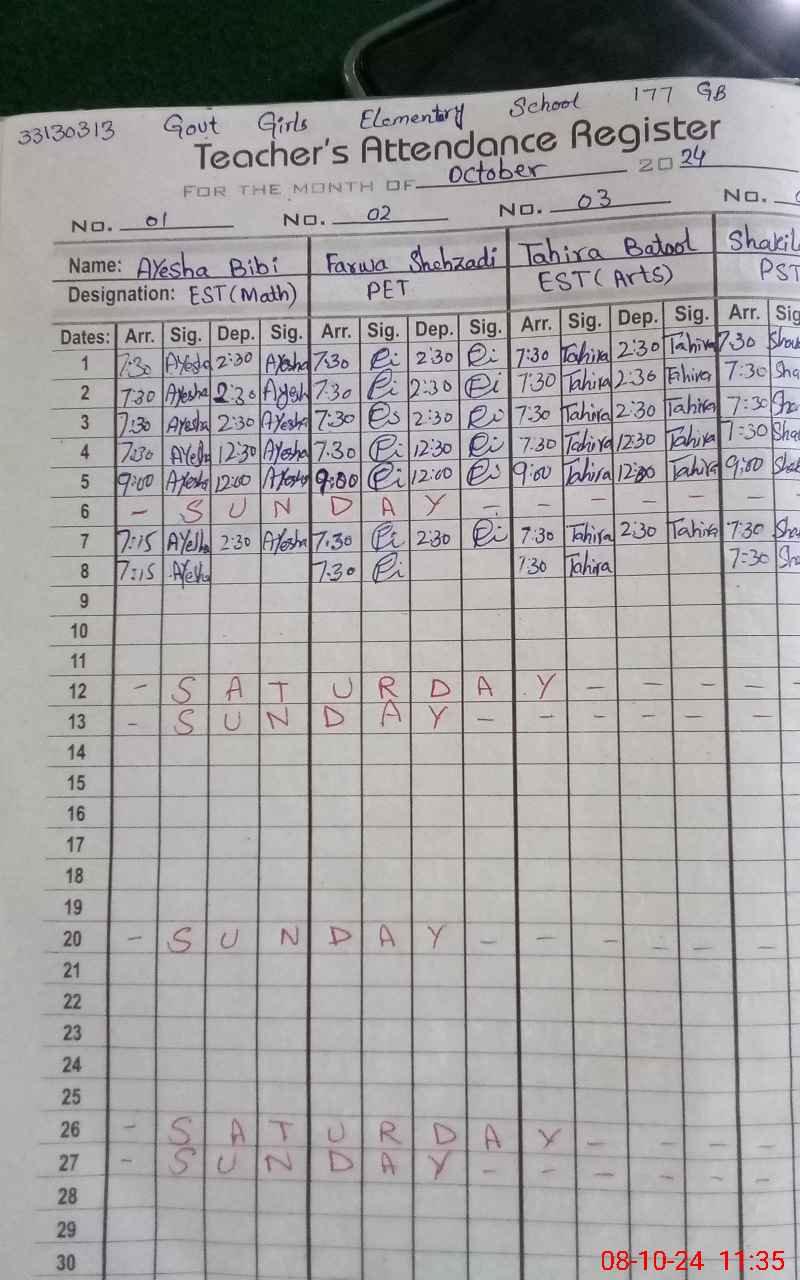 33130313 Gout Girls Elementry School 177 GB
Teacher's Attendance Register
FOR THE MONTH OF October 2024
No. 01 No. 02 No. 03 No.
Name: AYesha Bibi Farwa Shehzadi Tahira Batool Shakil
Designation: EST (Math) PET EST (Arts) PST
Dates: Arr. Sig. Dep. Sig. Arr. Sig. Dep. Sig. Arr. Sig. Dep. Sig. Arr. Sig
1 7:30 AYesha 2:30 AYesha 7:30 2:30 7:30 Tahira 2:30 Tahira 7:30 Sha
2 7:30 AYesha 2:30 AYesh 7:30 2:30 7:30 Tahira 2:30 Tahira 7:30 Sha
3 7:30 AYesha 2:30 AYesha 7:30 2:30 7:30 Tahira 2:30 Tahira 7:30 Sha
4 7:30 AYesha 12:30 AYesha 7:30 12:30 7:30 Tahira 12:30 Tahira 7:30 Sha
5 9:00 AYesha 12:00 AYesha 9:00 12:00 9:00 Tahira 12:00 Tahira 9:00 Shak
6 - S U N D A Y - - - - - - -
7 7:15 AYesha 2:30 AYesha 7:30 2:30 7:30 Tahira 2:30 Tahira 7:30 Sha
8 7:15 AYesha 7:30 7:30 Tahira 7:30 Sha
9
10
11
12 - S A T U R D A Y - - - - -
13 - S U N D A Y - - - - - -
14
15
16
17
18
19
20 - S U N D A Y - - - - - - -
21
22
23
24
25
26 - S A T U R D A Y - - - - -
27 - S U N D A Y - - - - - - -
28
29
30
08-10-24 11:35